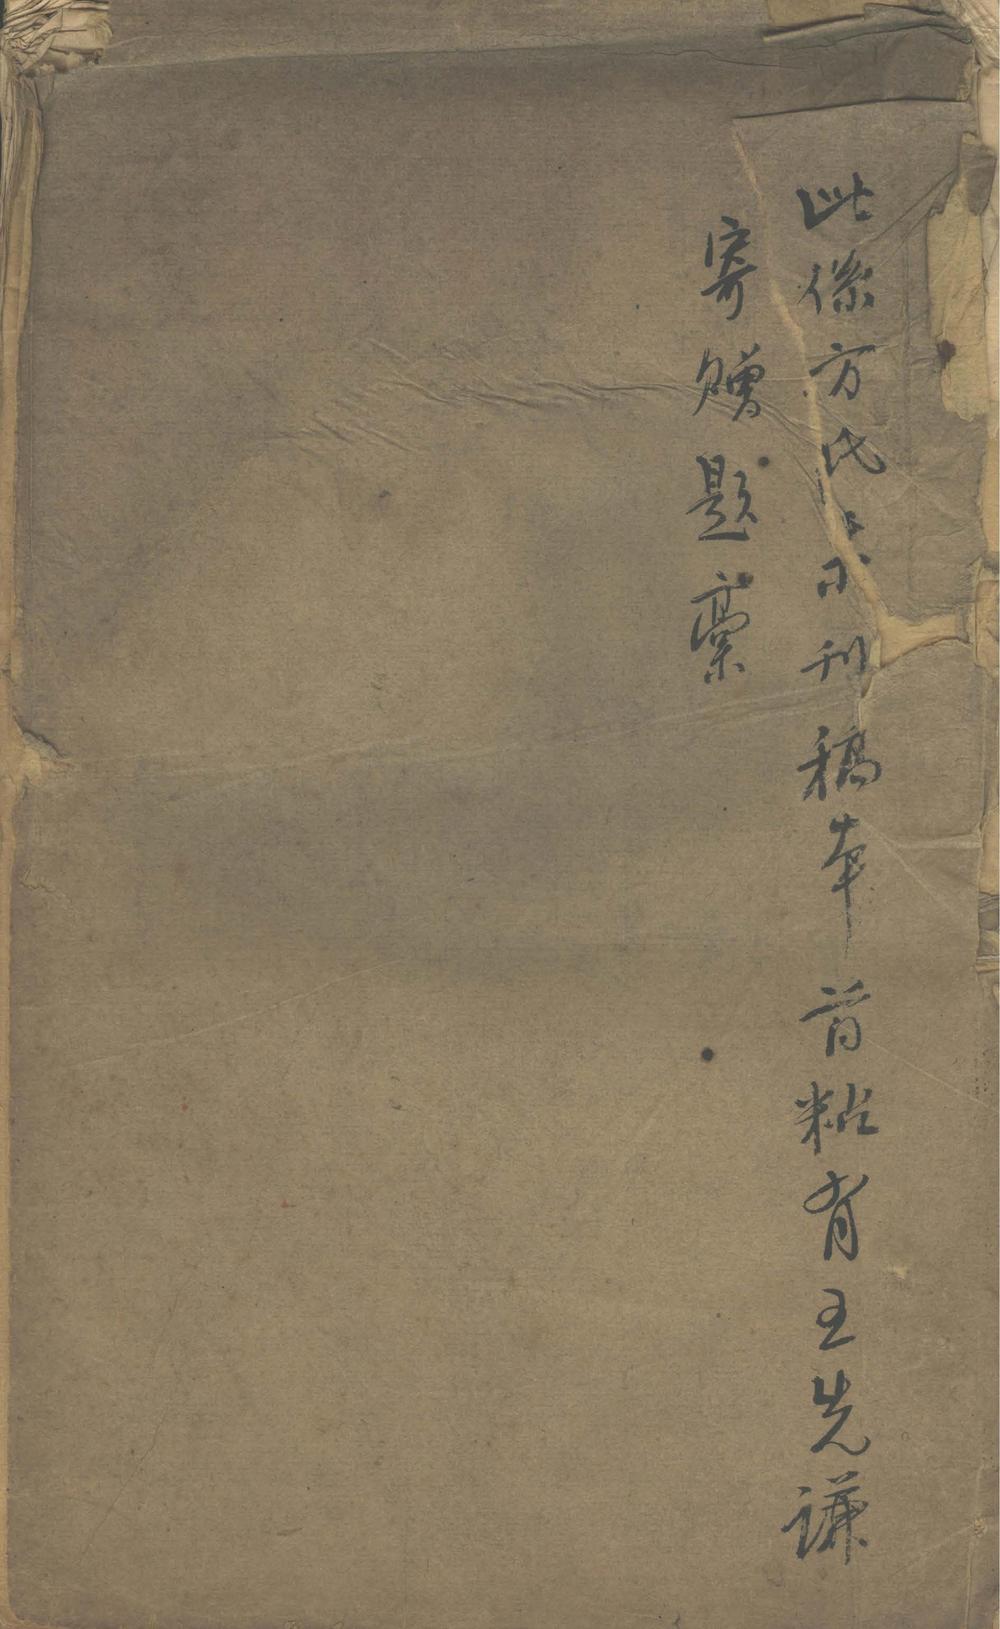 此係方氏未刊稿本首粘有王先謙
寄贈題稾